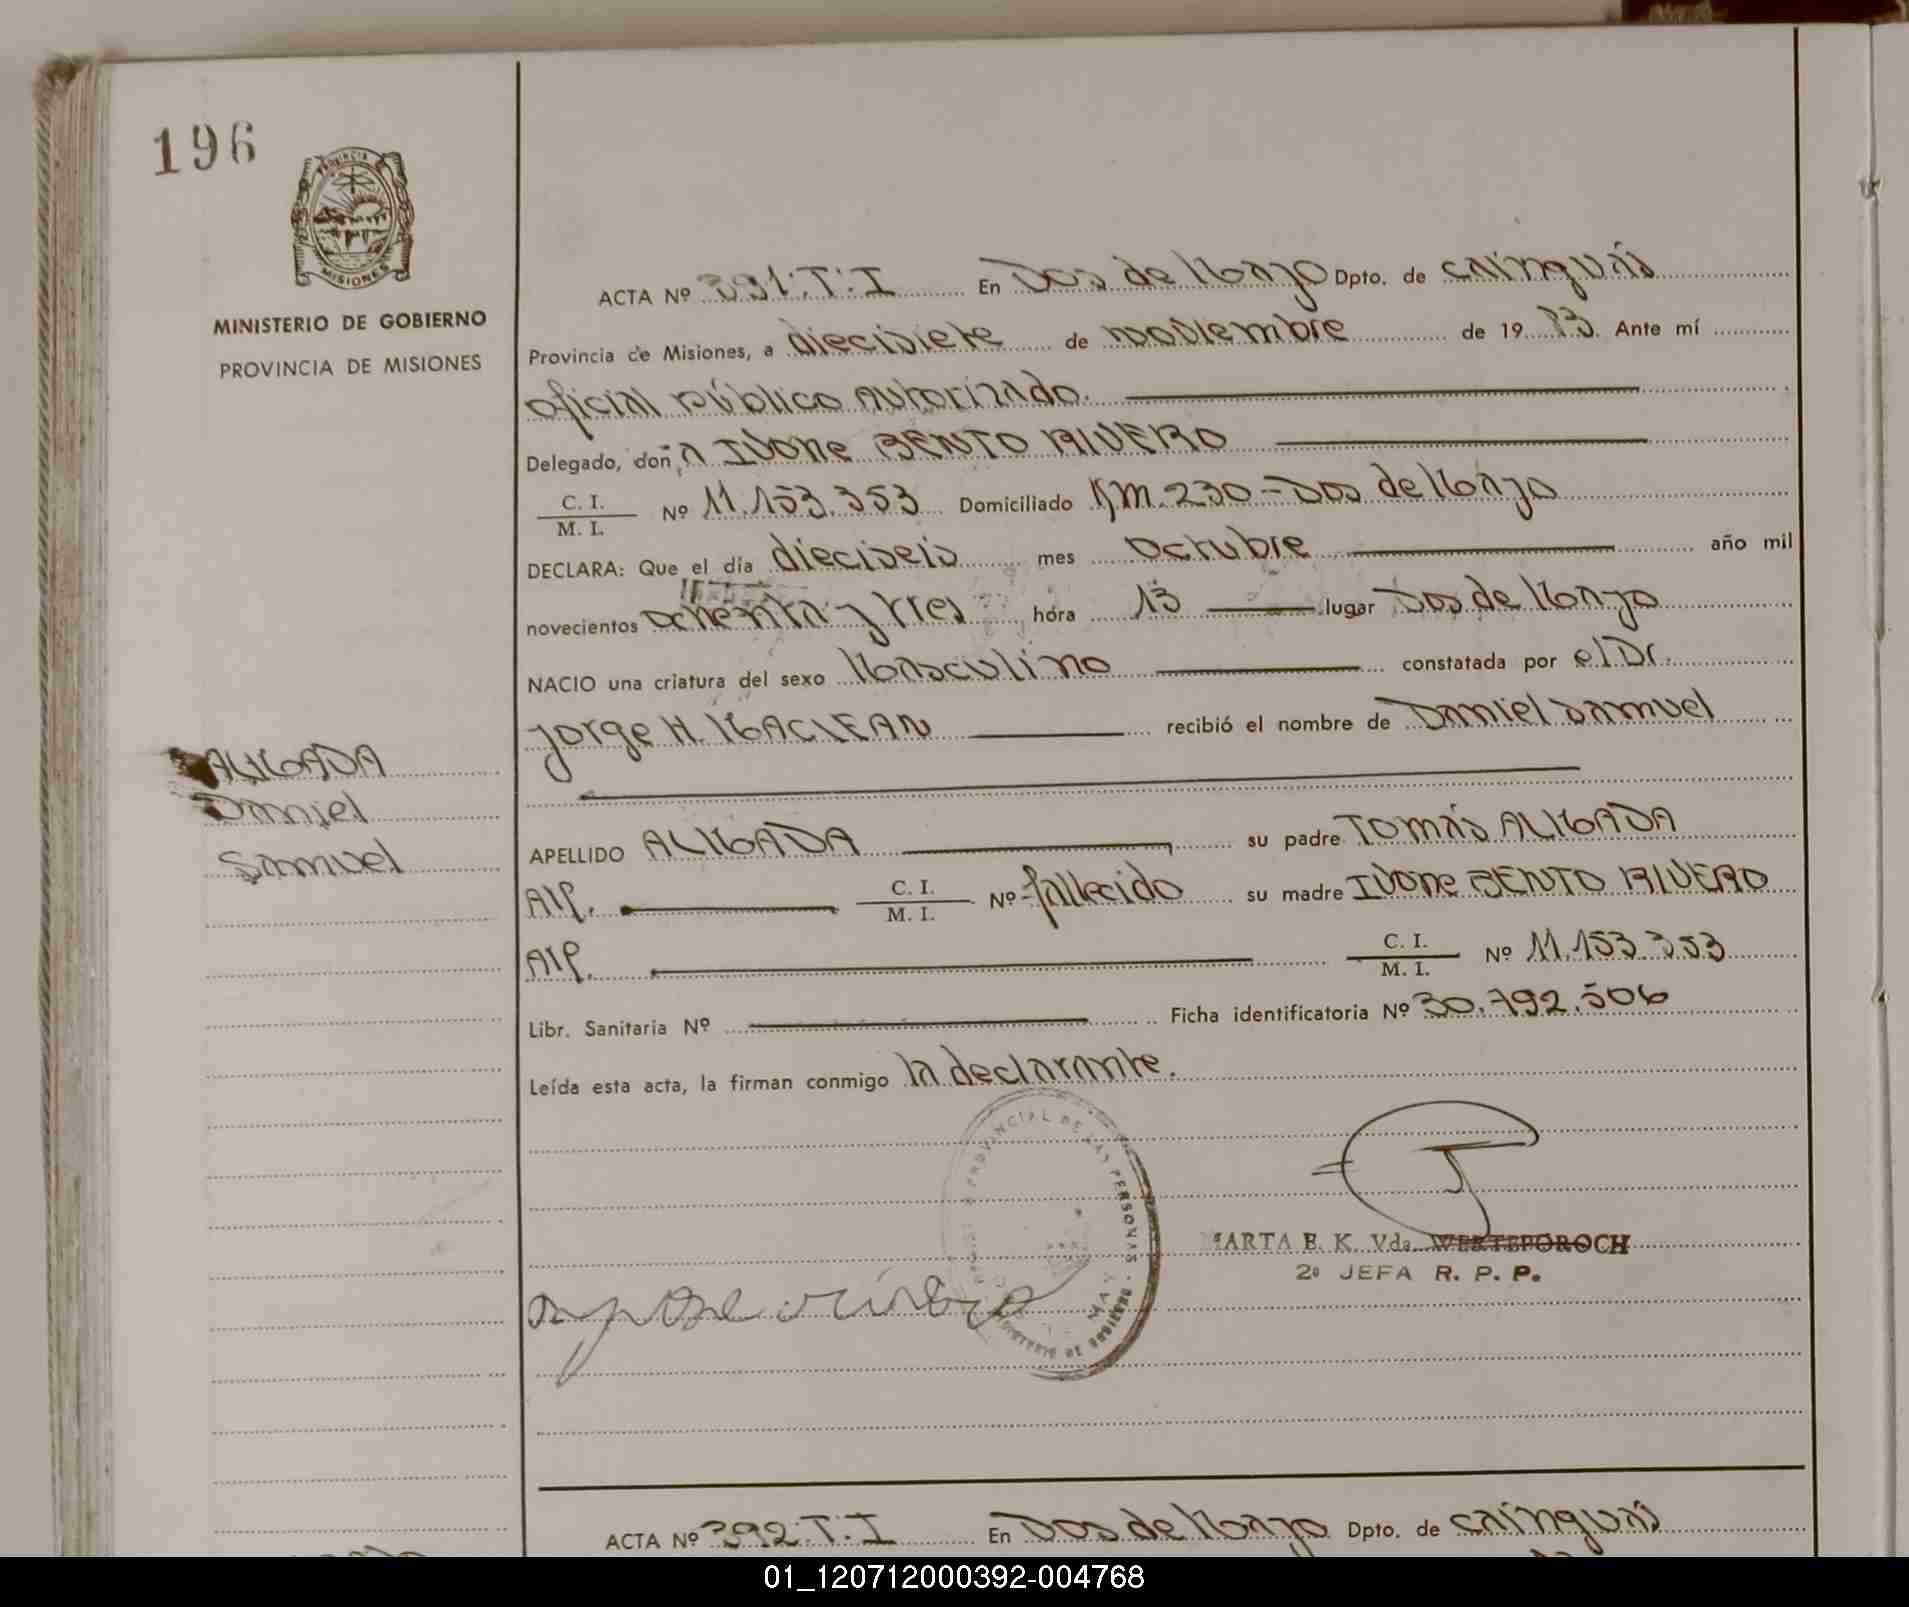 196
PROVINCIA
MISIONES
MINISTERIO DE GOBIERNO
PROVINCIA DE MISIONES
ACTA Nº 391:T:I En Dos de Mayo Dpto. de Cainguás
Provincia de Misiones, a diecisiete de noviembre de 19 83. Ante mí
oficial público autorizado.
Delegado, don,a Ivone BENTO RIVERO
C. I.
M. I. Nº 11.153.353 Domiciliado KM.230-Dos de Mayo
DECLARA: Que el día dieciseis mes octubre año mil
novecientos ochenta y tres hora 13 lugar Dos de Mayo
NACIO una criatura del sexo Masculino constatada por el Dr.
Jorge H. MACLEAN recibió el nombre de Daniel Samuel
ALMADA
Daniel
Samuel
APELLIDO ALMADA su padre Tomás ALMADA
C. I.
M. I. Nº-fallecido su madre Ivone BENTO RIVERO
C. I.
M. I. Nº 11.153.353
Libr. Sanitaria Nº Ficha identificatoria Nº 30.792.506
Leída esta acta, la firman conmigo la declarante.
PROVINCIAL DE LAS PERSONAS
MARTA E. K. Vda. WERTEPOROCH
2º JEFA R. P. P.
ACTA Nº 392:T:I En Dos de Mayo Dpto. de Cainguás
01_120712000392-004768